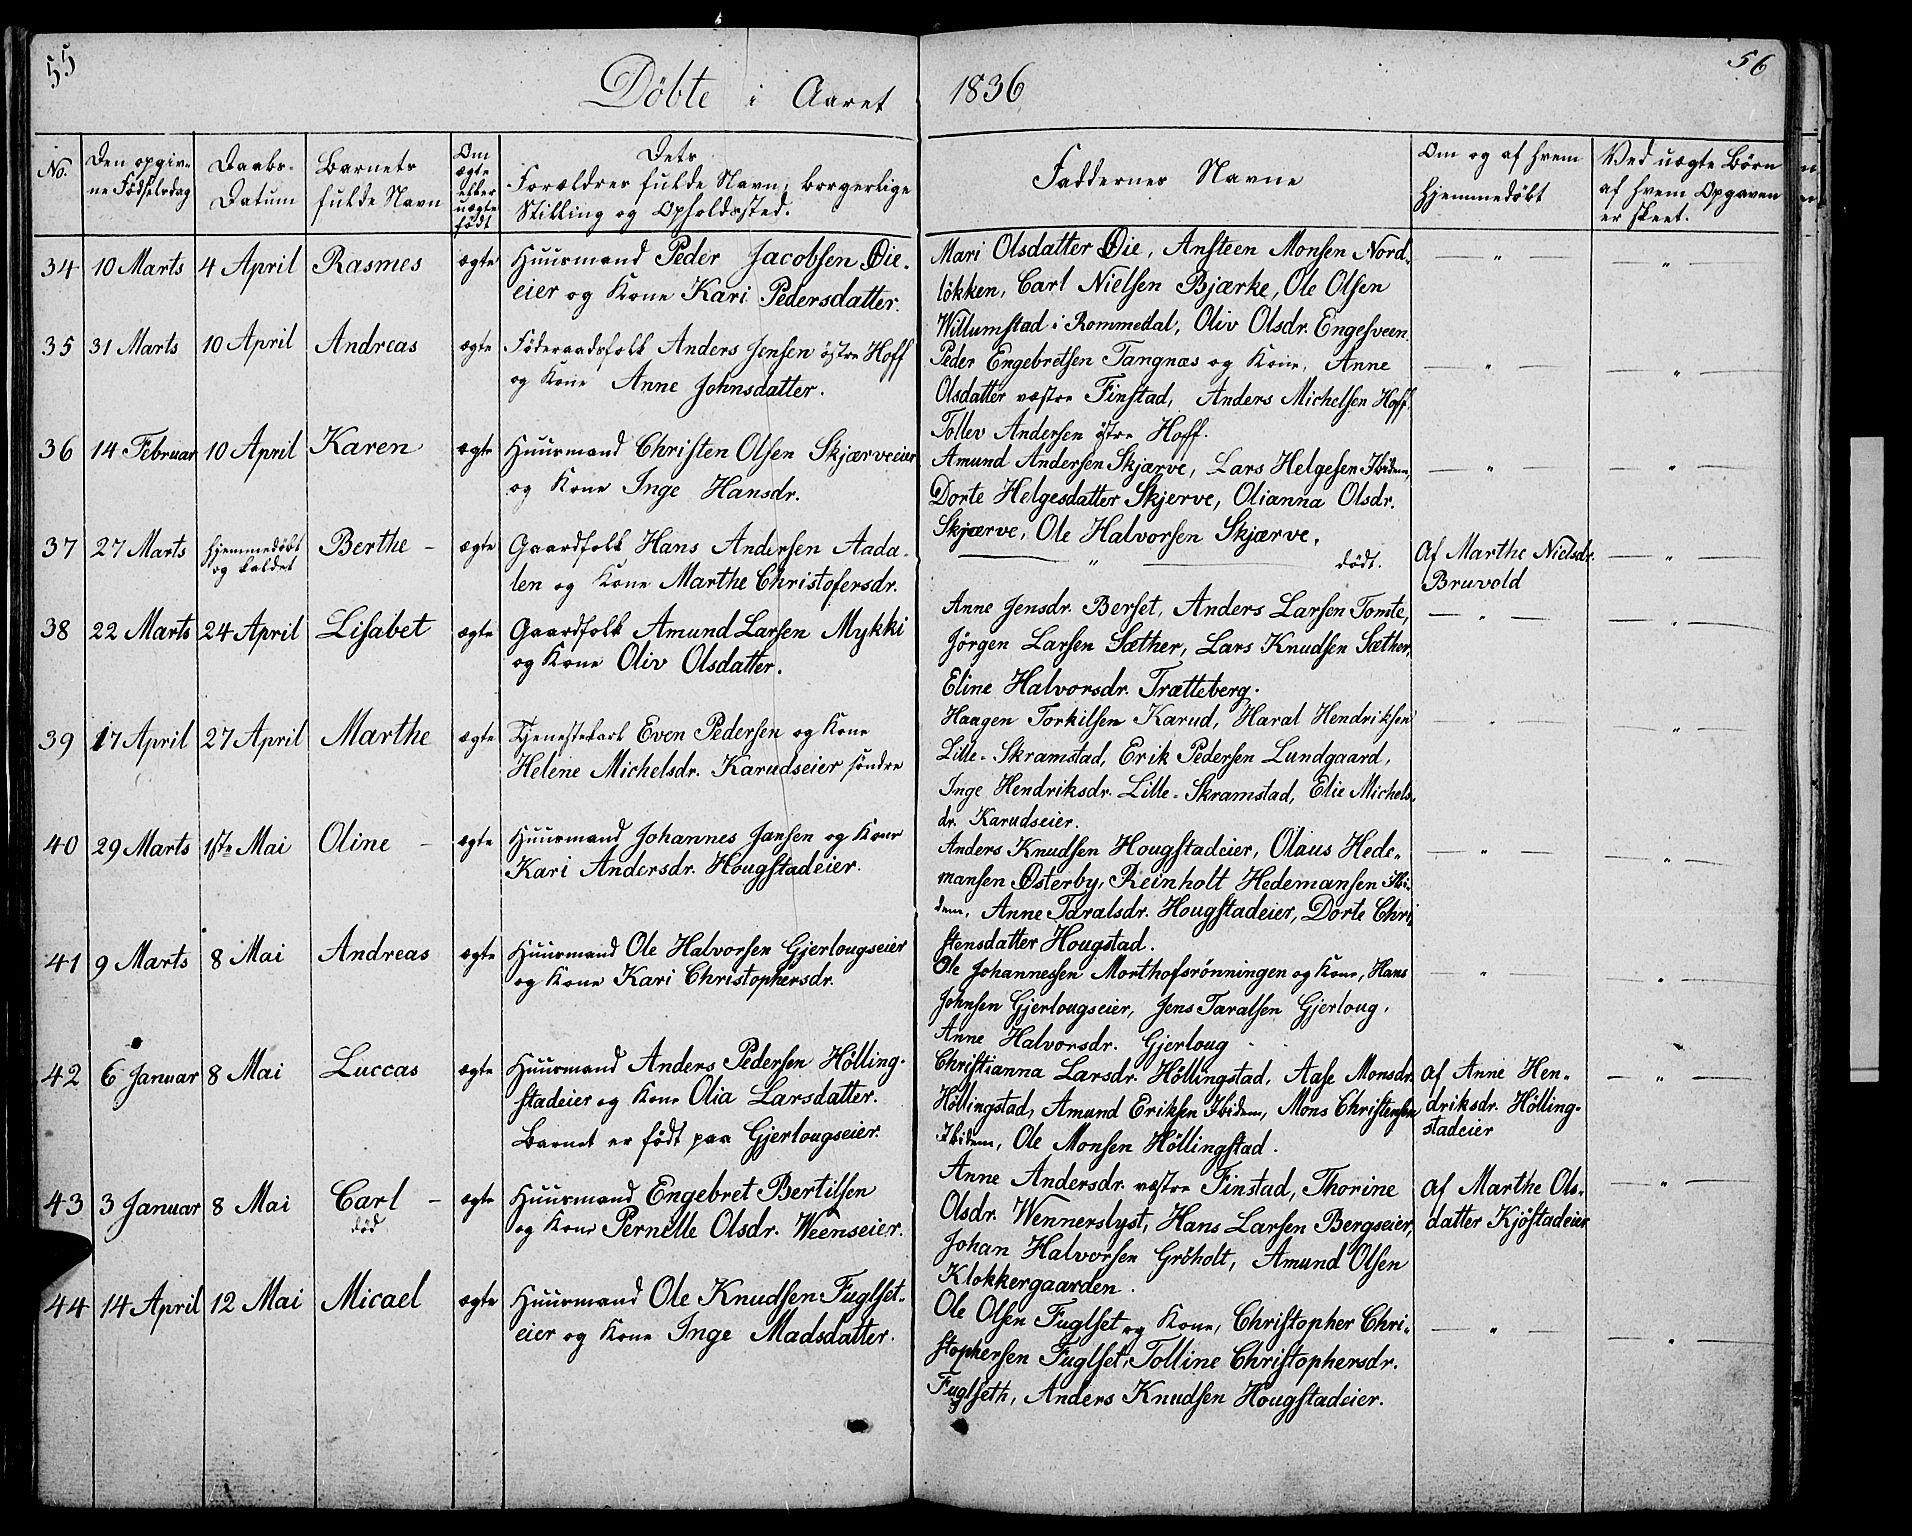 55
56
Döbte i Aaret 1836
No.
Den opgiv-
ne Födselsdag
Daabs-
Datum
Barnets
fulde Navn
Om
ægte
eller
uægte
födt
Dets
Forældres fulde Navn, borgerlige
Stilling og Opholdssted.
Faddernes Navne
Om og af hvem
hjemmedöbt
Ved uægte Börn
af hvem Opgaven
er skeet.
34 10 Marts 4 April Rasmes ægte Huusmand Peder Jacobsen Öie-
eier og Kone Kari Pedersdatter.
Mari Olsdatter Öie, Ansteen Monsen Nord-
lökken, Carl Nielsen Bjærke, Ole Olsen
Willumstad i Rommedal, Oliv Olsdr. Engesveen.
— " — — " —
35 31 Marts 10 April Andreas ægte Föderaadsfolk Anders Jensen östre Hoff
og Kone Anne Johnsdatter.
Peder Engebretsen Tangnæs og Kone, Anne
Olsdatter væstre Finstad, Anders Michelsen Hoff
Tollev Andersen östre Hoff.
— " — — " —
36 14 Februar 10 April Karen ægte Huusmand Christen Olsen Skjærveeier
og Kone Inge Hansdr.
Amund Andersen Skjærve, Lars Helgesen Ibidem,
Dorte Helgesdatter Skjerve, Olianna Olsdr.
Skjærve, Ole Halvorsen Skjærve.
— " — — " —
37 27 Marts hjemmedöbt
og kaldet
Berthe – ægte Gaardfolk Hans Andersen Aada-
len og Kone Marthe Christofersdr.
— " — dödt.
Af Marthe Nielsdr.
Bruvold
— " —
38 22 Marts 24 April Lisabet ægte Gaardfolk Amund Larsen Mykki
og Kone Oliv Olsdatter.
Anne Jensdr. Berset, Anders Larsen Tomte,
Jörgen Larsen Sæther, Lars Knudsen Sæther,
Eline Halvorsdr. Trætteberg.
— " — — " —
39 17 April 27 April Marthe ægte Tjenestekarl Even Pedersen og Kone
Helene Michelsdr. Karudseier söndre
Haagen Torkilsen Karud, Haral Hendriksen
Lille-Skramstad, Erik Pedersen Lundgaard,
Inge Hendriksdr. Lille-Skramstad, Elie Michels-
dr. Karudseier.
— " — — " —
40 29 Marts 1ste Mai Oline – ægte Huusmand Johannes Jansen og Kone
Kari Andersdr. Hougstadeier.
Anders Knudsen Hougstadeier, Olaus Hede-
mansen Österby, Reinholt Hedemansen Ibi-
dem, Anne Taralsdr. Hougstadeier, Dorte Chri
stensdatter Hougstad.
— " — — " —
41 9 Marts 8 Mai Andreas ægte Huusmand Ole Halvorsen Gjerlougseier
og Kone Kari Christophersdr.
Ole Johannessen Morthofsrönningen og Kone, Hans
Johnsen Gjerlougseier, Jens Taralsen Gjerloug,
Anne Halvorsdr. Gjerloug
" — " —
42 6 Januar 8 Mai Luccas ægte Huusmand Anders Pedersen Hölling-
stadeier og Kone Olia Larsdatter.
Barnet er födt paa Gjerlougseier.
Christianna Larsdr. Höllingstad, Aase Monsdr.
Höllingstad, Amund Eriksen Ibidem, Mons Christensen
Ibidem, Ole Monsen Höllingstad.
Af Anne Hen-
driksdr. Hölling-
stadeier
— " —
43 3 Januar 8 Mai Carl –
död
ægte Huusmand Engebret Bertilsen
og Kone Pernelle Olsdr. Weenseier.
Anne Andersdr. væstre Finstad, Thorine
Olsdr. Wennerslyst, Hans Larsen Bergseier,
Johan Halvorsen Gröholt, Amund Olsen
Klokkergaarden.
Af Marthe Ols-
datter Kjöstadeier
— " —
44 14 April 12 Mai Micael ægte Huusmand Ole Knudsen Fuglset-
eier og Kone Inge Madsdatter.
Ole Olsen Fuglset og Kone, Christopher Chri-
stophersen Fuglset, Tolline Christophersdr.
Fuglseth, Anders Knudsen Hougstadeier.
— " — — " —